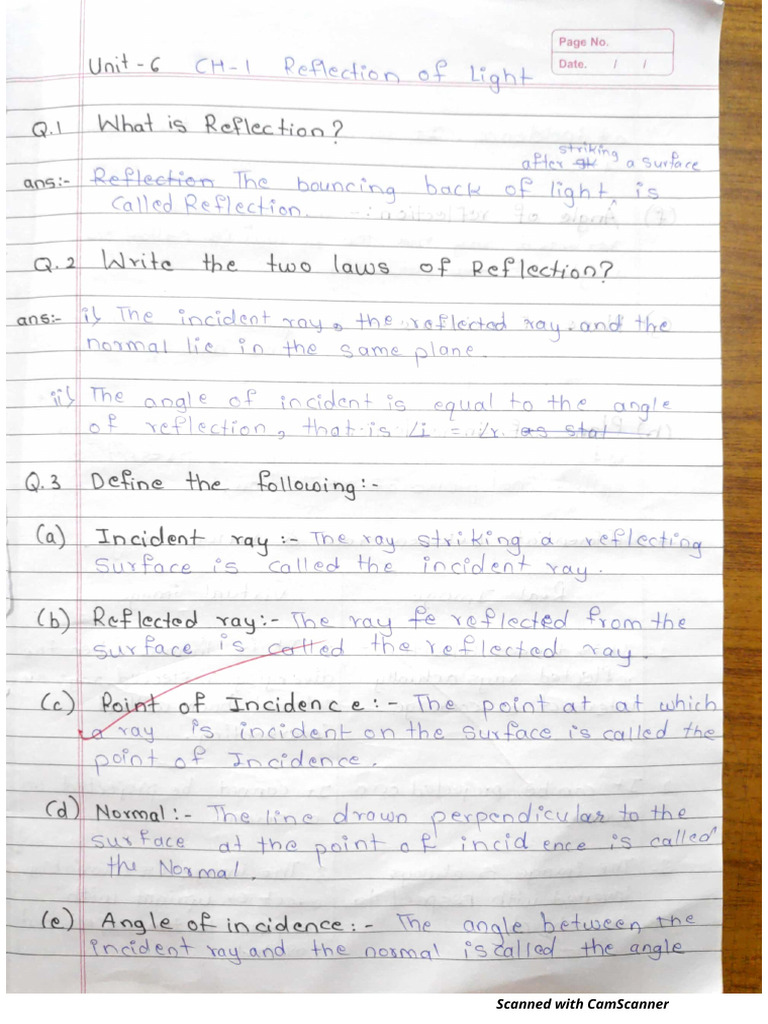 Page No.
Unit - 6 CH-1 Reflection of Light
Date. / /
Q.1 What is Reflection?
striking
after st a surface
ans:- Reflection The bouncing back of light, is
called Reflection.
Q.2 Write the two laws of Reflection?
ans:- i) The incident ray, the reflected ray and the
normal lie in the same plane.
ii) The angle of incident is equal to the angle
of reflection, that is ∠i = ∠r. as stat
Q.3 Define the following:-
(a) Incident ray :- The ray striking a reflecting
surface is called the incident ray.
(b) Reflected ray:- The ray fe reflected from the
surface is called the reflected ray.
(c) Point of Incidence:- The point at at which
a ray is incident on the surface is called the
point of Incidence.
(d) Normal:- The line drawn perpendicular to the
surface at the point of incidence is called
the Normal.
(e) Angle of incidence:- The angle between the
incident ray and the normal is called the angle
Scanned with CamScanner